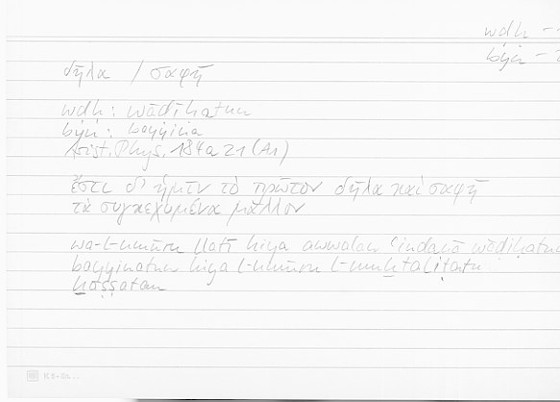 wdḥ –
byn –
δῆλα / σαφῆ
wdḥ: wāḍiḥatun
byn: bayyina
Arist. Phys. 184a21 (Ar)
ἔστι δ' ἡμῖν τὸ πρῶτον δῆλα καὶ σαφῆ
τὰ συγκεχυμένα μᾶλλον
wa-l-umūru llatī hiya awwalan ʿindanā wāḍiḥatun
bayyinatun hiya l-umūru l-muḫtaliṭatu
ḫāṣṣatan